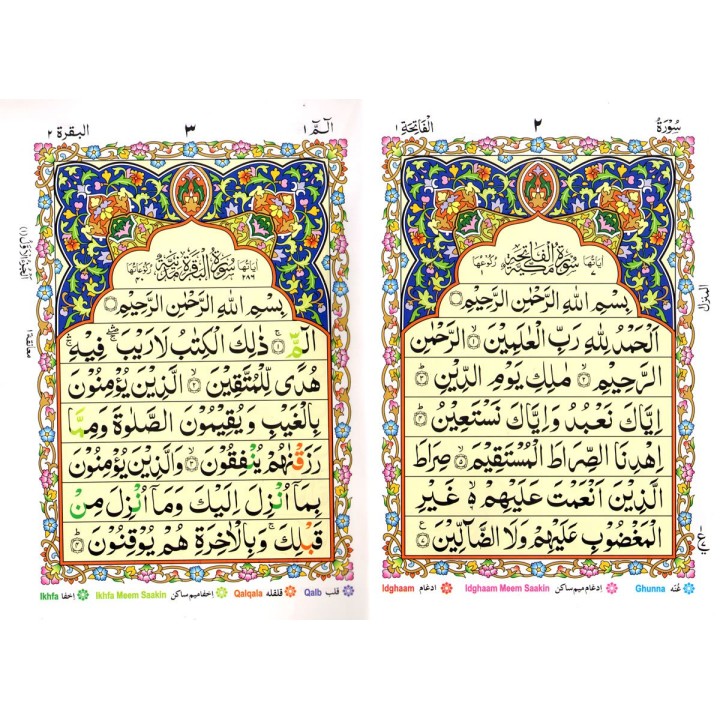 سُوْرَةُ ٢ اَلْفَاتِحَةِ ١
اٰيَاتُهَا سُوْرَةُ الْفَاتِحَةِ مَكِّيَّةٌ رُكُوْعُهَا
بِسْمِ اللّٰهِ الرَّحْمٰنِ الرَّحِيْمِ
اَلْحَمْدُ لِلّٰهِ رَبِّ الْعٰلَمِيْنَ ۙ الرَّحْمٰنِ
الرَّحِيْمِ ۙ مٰلِكِ يَوْمِ الدِّيْنِ
اِيَّاكَ نَعْبُدُ وَاِيَّاكَ نَسْتَعِيْنُ
اِهْدِنَا الصِّرَاطَ الْمُسْتَقِيْمَ ۙ صِرَاطَ
الَّذِيْنَ اَنْعَمْتَ عَلَيْهِمْ ۙ غَيْرِ
الْمَغْضُوْبِ عَلَيْهِمْ وَلَا الضَّآلِّيْنَ
المنزل
غُنّه Ghunna
ادغام میم ساکن Idghaam Meem Saakin
ادغام Idghaam
الٓمّٓ ١ ٣ البقرة ٢
اٰيَاتُهَا ٢٨٦ سُوْرَةُ الْبَقَرَةِ مَدَنِيَّةٌ رُكُوْعَاتُهَا ٤٠
بِسْمِ اللّٰهِ الرَّحْمٰنِ الرَّحِيْمِ
الٓمّٓ ۚ ذٰلِكَ الْكِتٰبُ لَا رَيْبَ ۛ فِيْهِ ۛ
هُدًى لِّلْمُتَّقِيْنَ ۙ الَّذِيْنَ يُؤْمِنُوْنَ
بِالْغَيْبِ وَيُقِيْمُوْنَ الصَّلٰوةَ وَمِمَّا
رَزَقْنٰهُمْ يُنْفِقُوْنَ ۙ وَالَّذِيْنَ يُؤْمِنُوْنَ
بِمَآ اُنْزِلَ اِلَيْكَ وَمَآ اُنْزِلَ مِنْ
قَبْلِكَ ۚ وَبِالْاٰخِرَةِ هُمْ يُوْقِنُوْنَ
اَلْجُزْءُ الْاَوَّلُ (١)
معانقة ١
قلب Qalb
قلقله Qalqala
اخفا میم ساکن Ikhfa Meem Saakin
اخفا Ikhfa